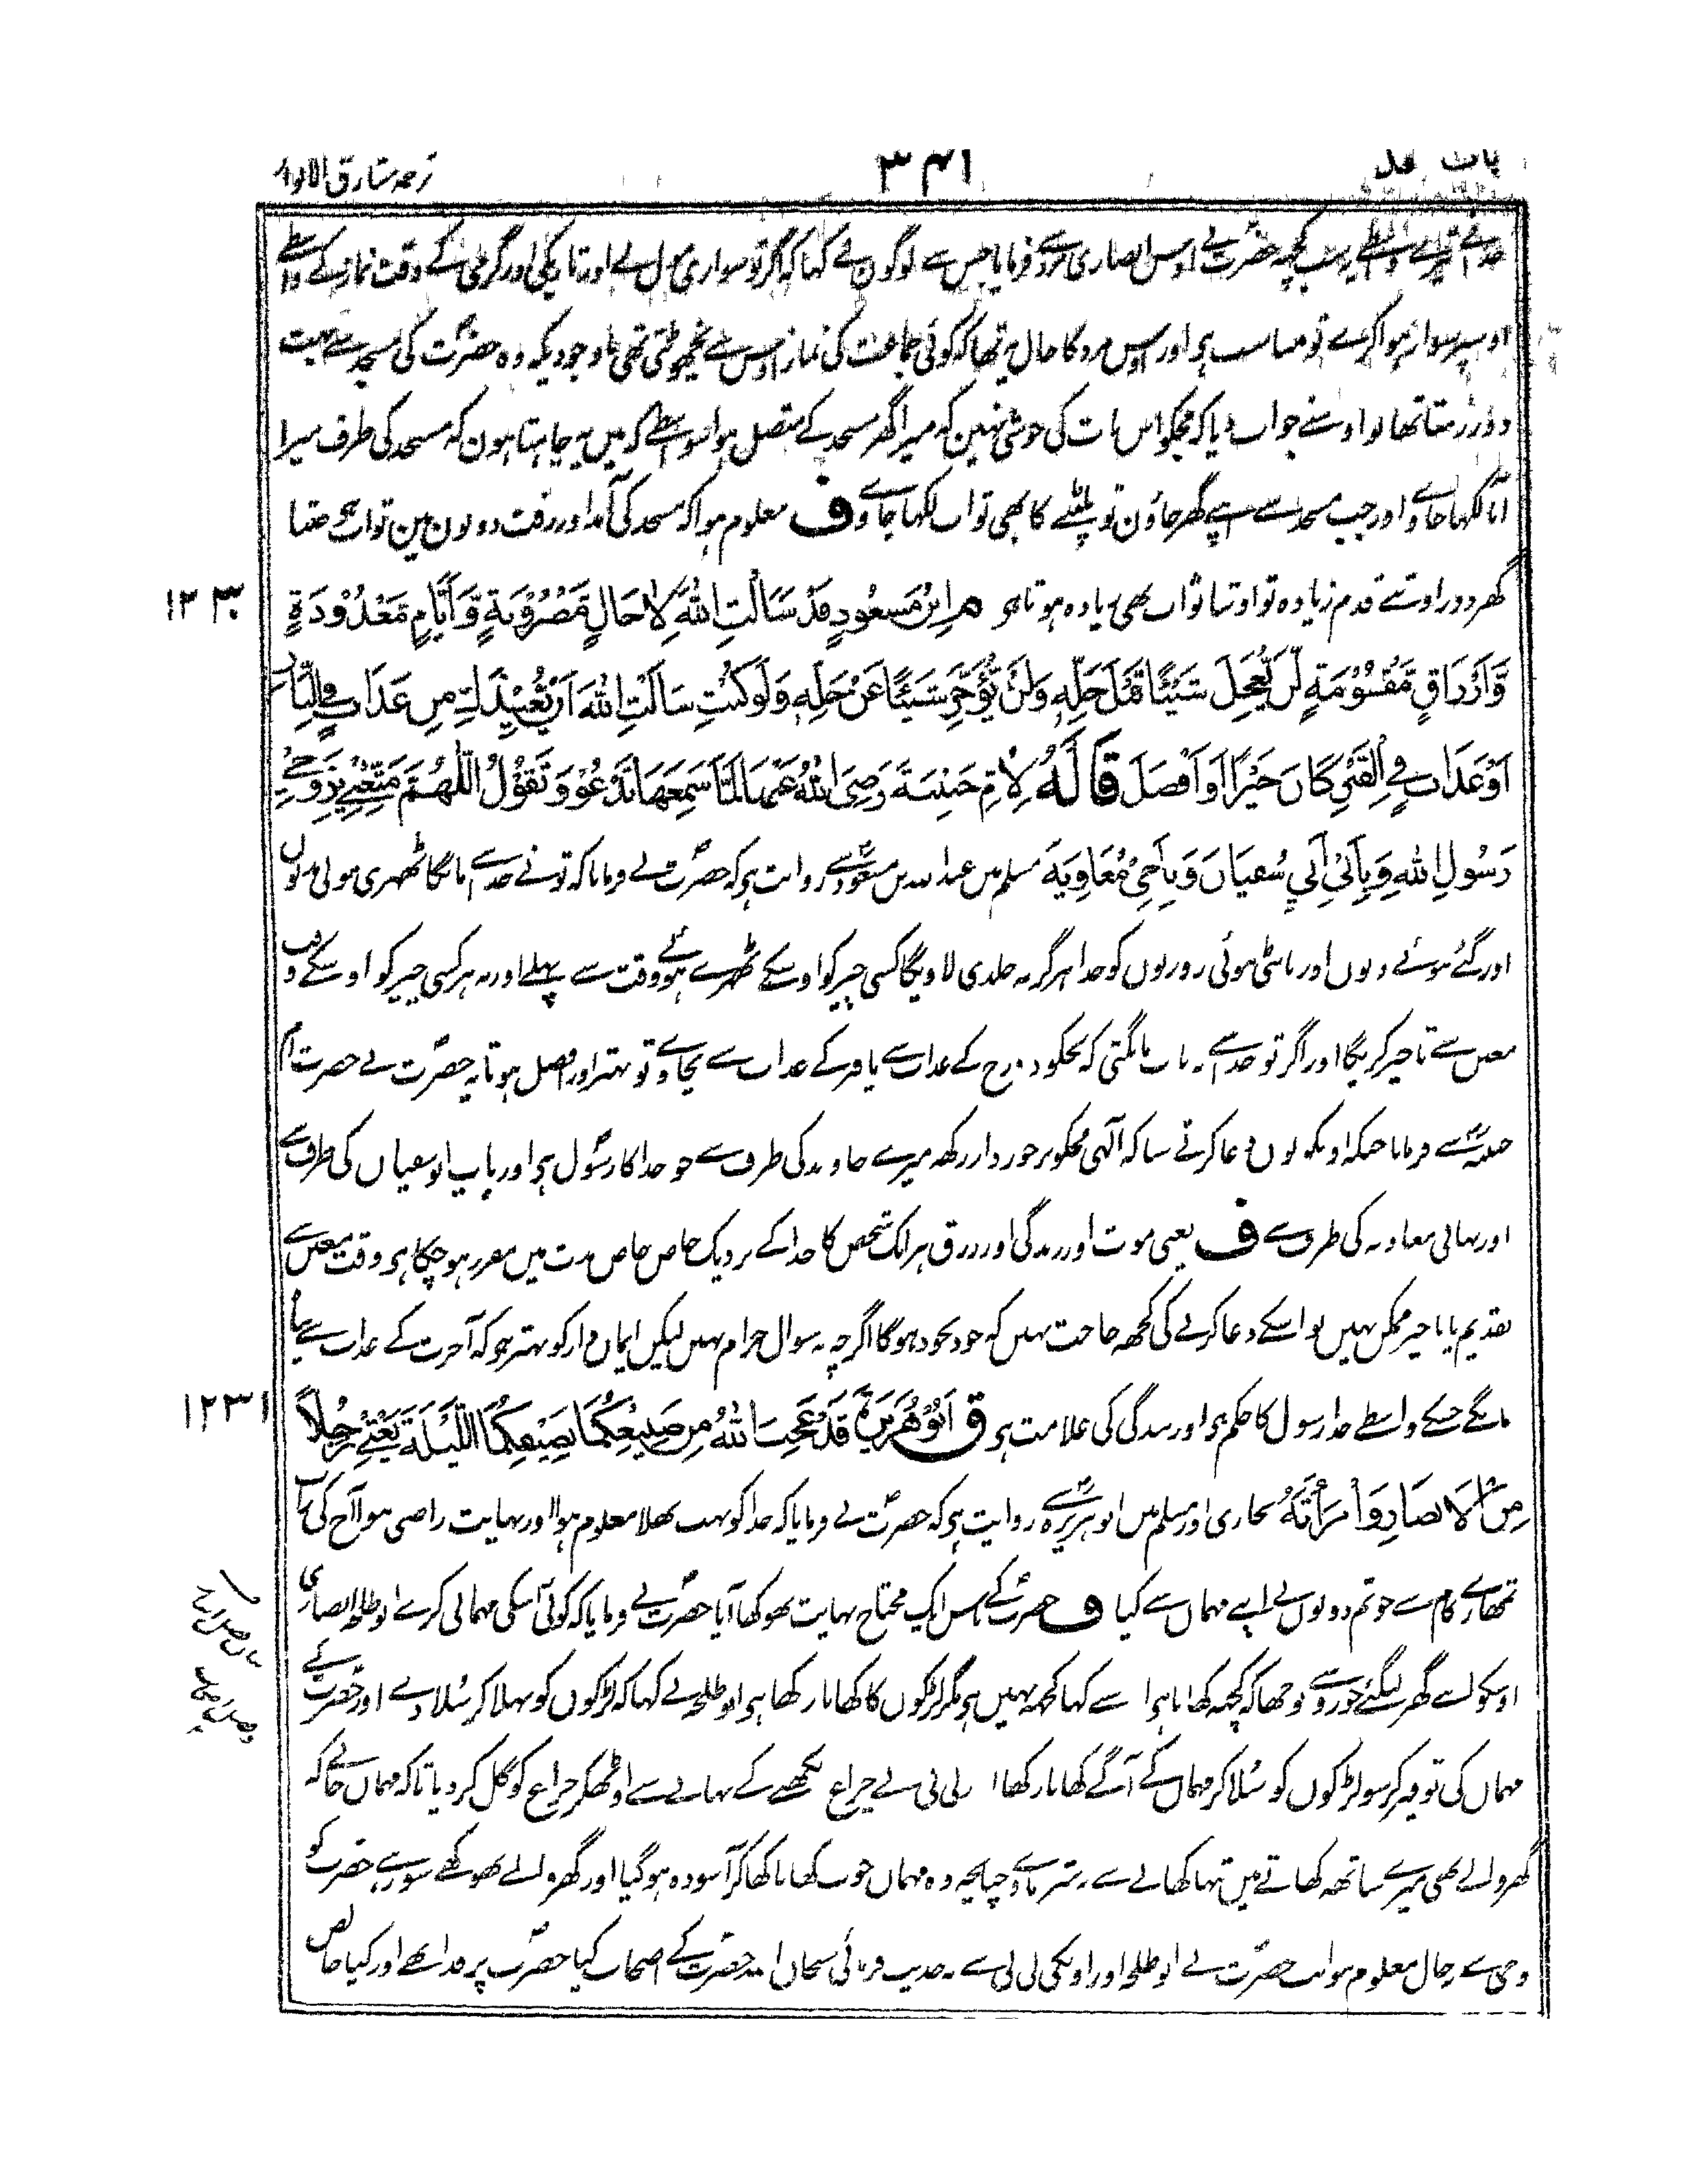 باب قد ۳۴۱ ترجمہ مشارق الانوار
خدانے تیرے واسطے یہ سب کچھ حضرت نے اوس انصاری مرد کو فرمایا جس سے لوگون نے کہا کہ اگر تو سواری مول لے اور تاریکی اور گرمی کے وقت نماز کے واسطے
اوسپر سوار ہوا کرے تو مناسب ہی اور اوس مرد کا حال یہ تھا کہ کوئی جماعت کی نماز اوس سے نچھوٹتی تھی باوجودیکہ وہ حضرت کی مسجد سے بہت
دور رہتا تھا تو اوسنے جواب دیا کہ مجکو اس بات کی خوشی نہین کہ میرا گھر مسجد کے متصل ہو اسواسطے کہ میں یہ چاہتا ہون کہ مسجد کی طرف میرا
آنا لکھا جاوے اور جب مسجد سے اپنے گھر جاؤن تو پلٹنے کا بھی ثواب لکھا جاوے ف معلوم ہوا کہ مسجد کی آمد اور رفت دونون مین ثواب ہی جتنا
گھر دور اوتنے قدم زیادہ تو اوتنا ثواب بھی زیادہ ہوتا ہی م اِبْنُ مَسْعُودٍ قَدْ سَاَلْتِ اللّٰهَ لِاٰجَالٍ مَّضْرُوْبَةٍ وَّاَيَّامٍ مَّعْدُوْدَةٍ
۱۲۳۰
وَّاَرْزَاقٍ مَّقْسُوْمَةٍ لَّنْ يُّعَجِّلَ شَيْئًا قَبْلَ حِلِّهٖ وَلَنْ يُّؤَخِّرَ شَيْئًا عَنْ حِلِّهٖ وَلَوْ كُنْتِ سَاَلْتِ اللّٰهَ اَنْ يُّعِيْذَكِ مِنْ عَذَابٍ فِي النَّارِ
اَوْ عَذَابٍ فِي الْقَبْرِ كَانَ خَيْرًا اَوْ اَفْضَلَ قَالَهُ لِاُمِّ حَبِيْبَةَ رَضِيَ اللّٰهُ عَنْهَا لَمَّا سَمِعَهَا تَدْعُوْ وَتَقُوْلُ اللّٰهُمَّ مَتِّعْنِيْ بِزَوْجِيْ
رَسُوْلِ اللّٰهِ وَبِاَبِيْ اَبِيْ سُفْيَانَ وَبِاَخِيْ مُعَاوِيَةَ مسلم میں عبد اللہ بن مسعودؓ سے روایت ہی کہ حضرت نے فرمایا کہ تونے خدا سے مانگا ٹھہری ہوئی مدتوں
اور گنے ہوئے دنوں اور بانٹی ہوئی روزیوں کو خدا ہرگز نہ جلدی لاویگا کسی چیز کو اوسکے ٹھہرے ہوئے وقت سے پہلے اور نہ ہرگز کسی چیز کو اوسکے وقت
معین سے تاخیر کریگا اور اگر تو خدا سے یہ بات مانگتی کہ تجکو دوزخ کے عذاب سے یا قبر کے عذاب سے بچاوے تو بہتر اور افضل ہوتا یہ حضرت نے حضرت ام
حبیبہ سے فرمایا جبکہ اونکو یوں دعا کرتے سنا کہ الٰہی مجکو برخوردار رکھ میرے خاوند کی طرف سے جو خدا کا رسول ہی اور باپ ابوسفیاں کی طرف سے
اور بھائی معاویہ کی طرف سے ف یعنی موت اور زندگی اور رزق ہر ایک شخص کا خدا کے نزدیک خاص خاص مدت میں مقرر ہو چکا ہی وقت معین سے
تقدیم یا تاخیر ممکن نہیں تو اسکے دعا کرنے کی کچھ حاجت نہیں کہ خودبخود ہوگا اگرچہ یہ سوال حرام نہیں لیکن ایمان دار کو بہتر ہی کہ آخرت کے عذاب سے پناہ
مانگے جسکے واسطے خدا رسول کا حکم ہی اور بندگی کی علامت ہی ق اَبُوْ هُرَيْرَةَ قَدْ عَجِبَ اللّٰهُ مِنْ صَنِيْعِكُمَا بِضَيْفِكُمَا اللَّيْلَةَ يَعْنِيْ رَجُلًا
۱۲۳۱
مِّنَ الْاَنْصَارِ وَامْرَاَتَهٗ بخاری اور مسلم میں ابوہریرہؓ سے روایت ہی کہ حضرت نے فرمایا کہ خدا کو بہت بھلا معلوم ہوا اور نہایت راضی ہوا آج کی رات
تمھارے کام سے جو تم دونوں نے اپنے مہماں سے کیا ف حضرت کے پاس ایک محتاج نہایت بھوکھا آیا حضرت نے فرمایا کہ کوئی اسکی مہمانی کرے ابوطلحہ انصاری
اوسکو اپنے گھر لیگئے جورو سے پوچھا کہ کچھ کھانا ہی سے کہا کچھ نہیں ہی مگر لڑکوں کا کھانا رکھا ہی ابوطلحہ نے کہا کہ لڑکوں کو بہلا کر سُلا دے اور حضرت کے
مہماں کی توقیر کر سو لڑکوں کو سُلا کر مہماں کے آگے کھانا رکھا اور بی بی نے چراغ کے بہانے سے اوٹھکر چراغ کو گل کر دیا تاکہ مہماں جانے کہ
گھر والے بھی میرے ساتھ کھاتے میں تنہا کھانے سے نہ شرماوے چنانچہ وہ مہماں خوب کھانا کھا کر آسودہ ہو گیا اور گھر والے بھوکھے سو رہے حضرت کو
وحی سے یہ حال معلوم ہوا تب حضرت نے ابوطلحہ اور اونکی بی بی سے یہ حدیث فرمائی سبحان اللہ حضرت کے اصحاب کیا حضرت پر فدا تھے اور کیا خالص